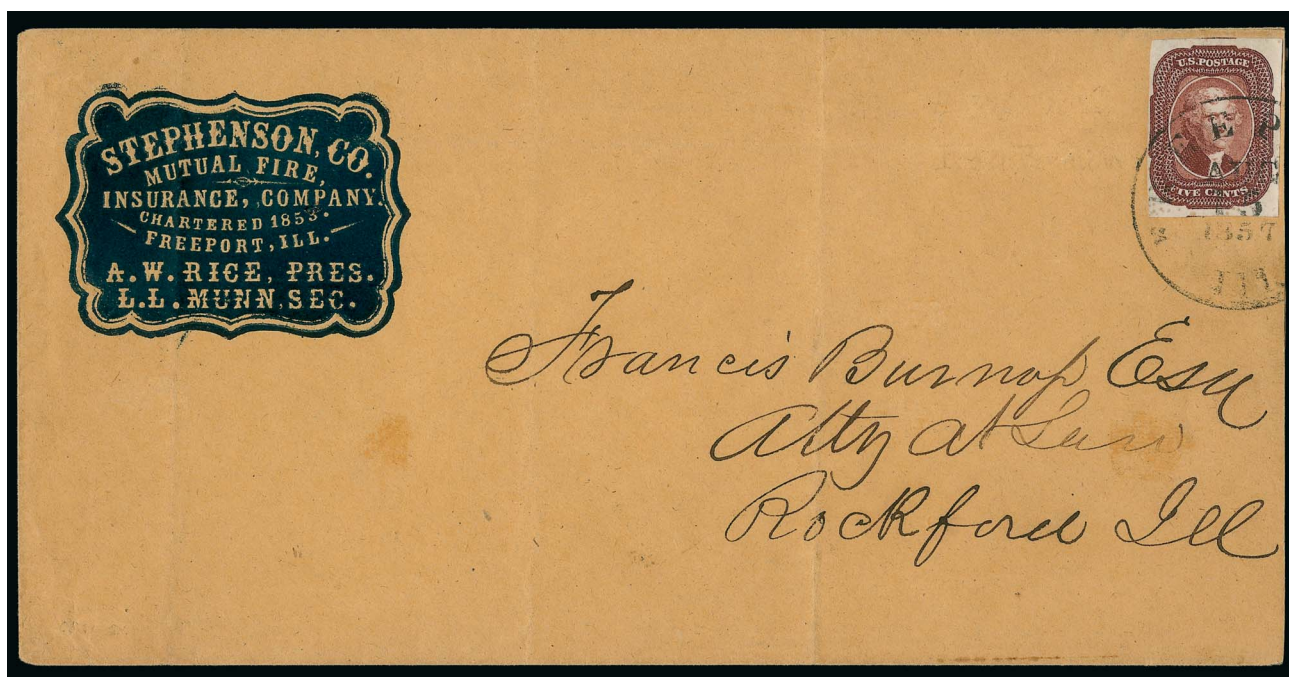 STEPHENSON, CO.
MUTUAL FIRE,
INSURANCE, COMPANY.
CHARTERED 1853.
FREEPORT, ILL.
A. W. RICE, PRES.
L. L. MUNN, SEC.
U.S. POSTAGE
FIVE CENTS
1857
ILL
Francis Burnap Esq
Atty at Law
Rockford Ill